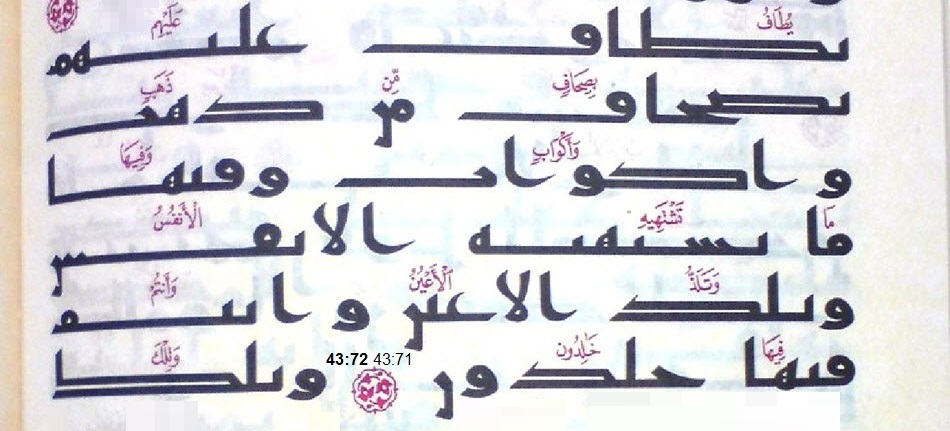 يُطَافُ عَلَيْهِم
يطاف عليهم
بِصِحَافٍ مِّن ذَهَبٍ
بصحاف من ذهب
وَأَكْوَابٍ وَفِيهَا
واكواب وفيها
مَا تَشْتَهِيهِ الْأَنفُسُ
ما تشتهيه الانفس
وَتَلَذُّ الْأَعْيُنُ وَأَنتُمْ
وتلذ الاعين وانتم
فِيهَا خَٰلِدُون 43:71 43:72 وَتِلْكَ
فيها خلدون وتلك